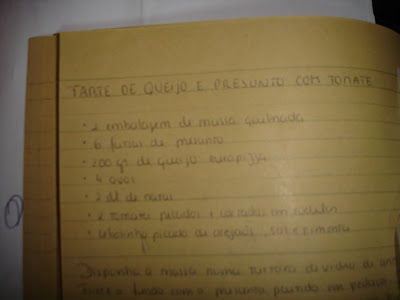 TARTE DE QUEIJO E PRESUNTO COM TOMATE
• 1 embalagem de massa quebrada
• 6 fatias de presunto
• 200 grs de queijo
• 4 ovos
• 2 dl de natas
• 2 tomates pelados e cortados em
• cebolinho picado ou oregãos, sal e pimenta
Disponha a massa numa tarteira de vidro de
o fundo com o presunto partido em